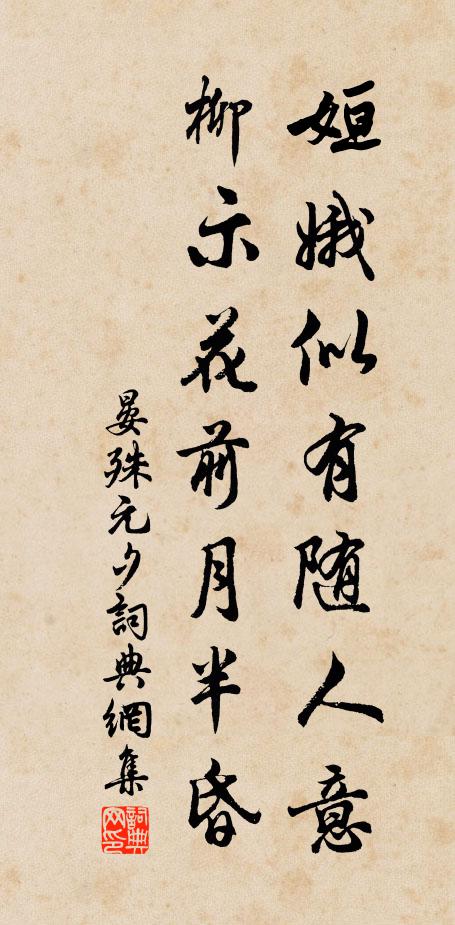 姮娥似有随人意
柳示花前月半昏
晏殊元夕詞典網集
詞典网印